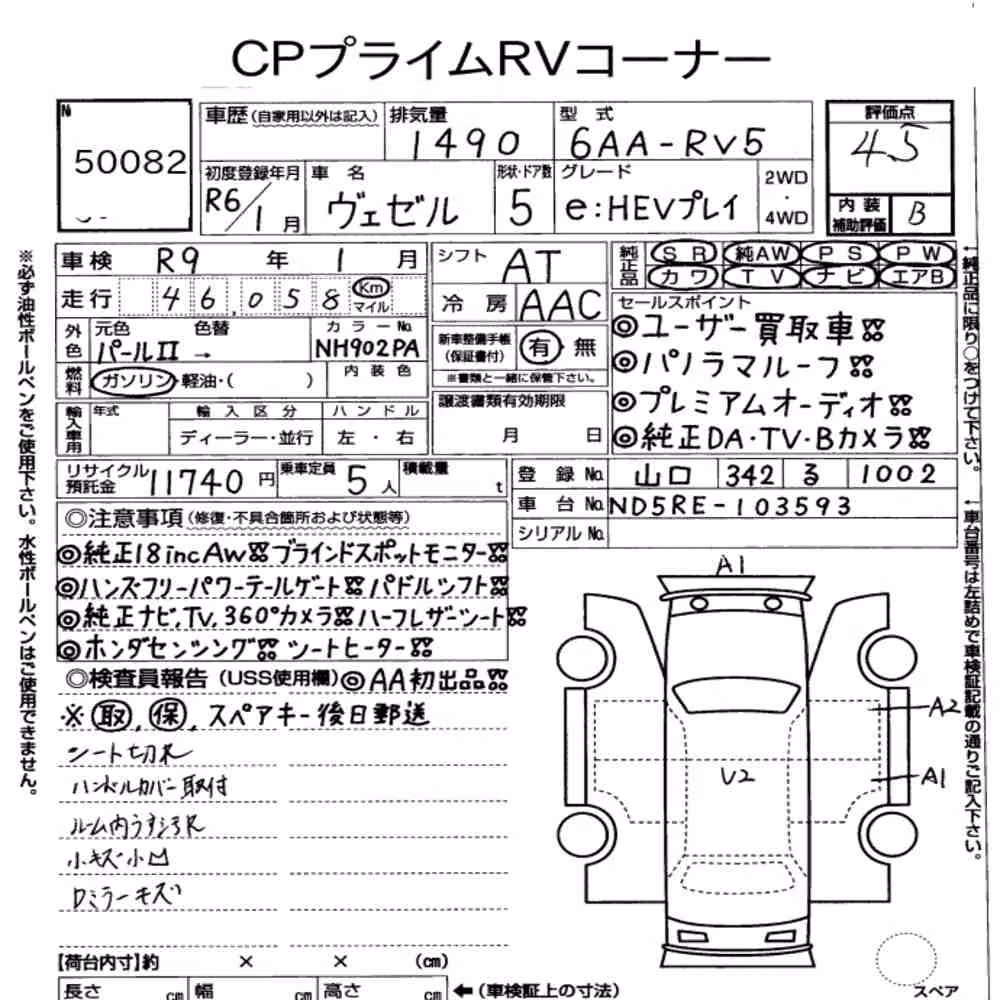 CPプライムRVコーナー
№ 50082
車歴(自家用以外は記入) 排気量 1490 型式 6AA-RV5
初度登録年月 R6/1月 車名 ヴェゼル 形状・ドア数 5 グレード e:HEVプレイ 2WD・4WD
評価点 4.5
内装補助評価 B
車検 R9年 1月 シフト AT
走行 46,058 Km マイル 冷房 AAC
外色 元色 パールII 色替 → カラーNo. NH902PA
燃料 ガソリン・軽油・( ) 内装色
新車整備手帳(保証書付) 有 無
※書類と一緒に保管下さい。
輸入車用 年式 輸入区分 ディーラー・並行 ハンドル 左・右
譲渡書類有効期限 月 日
純正品 SR 純AW PS PW
カワ TV ナビ エアB
セールスポイント
◎ユーザー買取車!!
◎パノラマルーフ!!
◎プレミアムオーディオ!!
◎純正DA・TV・Bカメラ!!
リサイクル預託金 11740円 乗車定員 5人 積載量 t
登録No. 山口 342 る 1002
車台No. ND5RE-103593
シリアルNo.
◎注意事項(修復・不具合箇所および状態等)
◎純正18incAW!! ブラインドスポットモニター!!
◎ハンズフリーパワーテールゲート!! パドルシフト!!
◎純正ナビ,TV,360°カメラ!! ハーフレザーシート!!
◎ホンダセンシング!! シートヒーター!!
◎検査員報告(USS使用欄) ◎AA初出品!!
※取,保,スペアキー後日郵送
シート切れ
ハンドルカバー取付
ルーム内うす汚れ
小キズ小凹
Dミラーキズ
A1
A2
U2
A1
【荷台内寸】約 × × (cm)
長さ cm 幅 cm 高さ cm ←(車検証上の寸法)
スペア
※必ず油性ボールペンをご使用下さい。水性ボールペンはご使用できません。
←純正品に限り○をつけて下さい。
←車台番号は左詰めで車検証記載の通りご記入下さい。